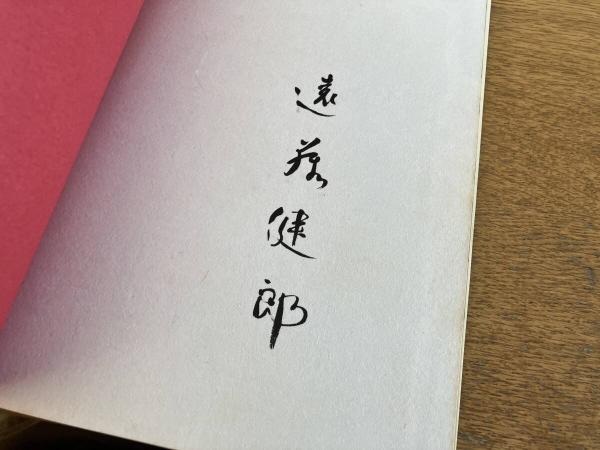 遠藤健郎